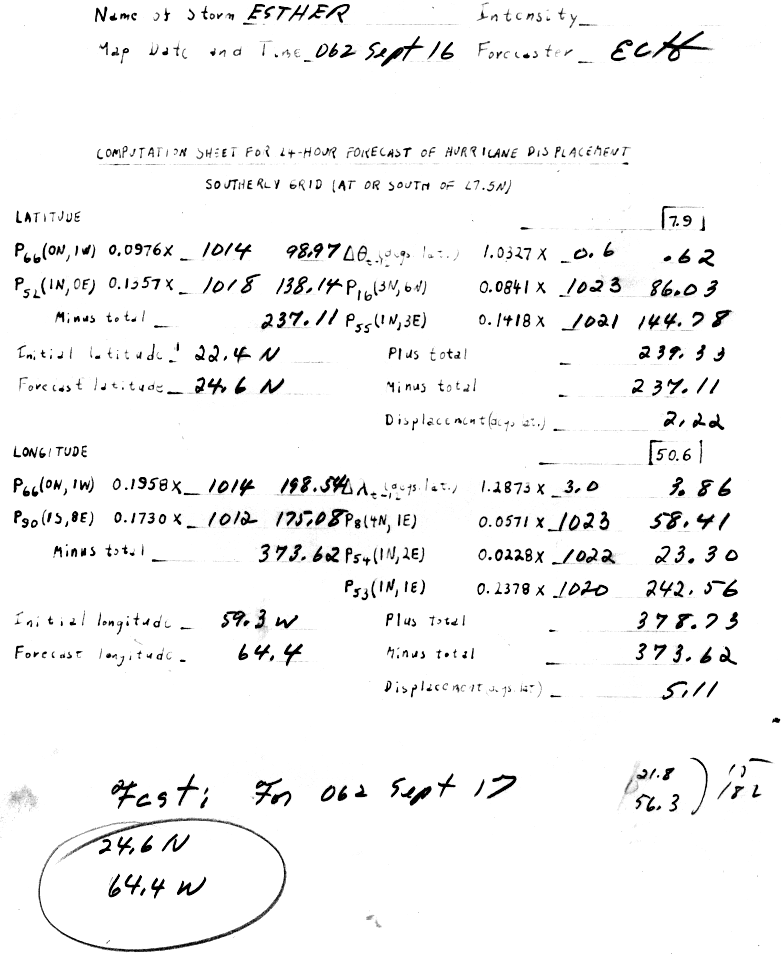 Name of Storm ESTHER Intensity
Map Date and Time 06Z Sept 16 Forecaster ECH
COMPUTATION SHEET FOR 24-HOUR FORECAST OF HURRICANE DISPLACEMENT
SOUTHERLY GRID (AT OR SOUTH OF 27.5N)
LATITUDE 7.9
P66(0N, 1W) 0.0976X 1014 98.97 Δθ (degs. lat.) 1.0327 X 0.6 .62
P52(1N, 0E) 0.1357X 1018 138.14 P16(3N, 6W) 0.0841 X 1023 86.03
Minus total 237.11 P55(1N, 3E) 0.1418 X 1021 144.78
Initial latitude 22.4 N Plus total 239.33
Forecast latitude 24.6 N Minus total 237.11
Displacement (degs. lat.) 2.22
LONGITUDE 50.6
P66(0N, 1W) 0.1958X 1014 198.54 Δλ (degs. lat.) 1.2873 X 3.0 3.86
P90(1S, 8E) 0.1730X 1012 175.08 P8(4N, 1E) 0.0571 X 1023 58.41
Minus total 373.62 P54(1N, 2E) 0.0228X 1022 23.30
P53(1N, 1E) 0.2378 X 1020 242.56
Initial longitude 59.3 W Plus total 378.73
Forecast longitude 64.4 Minus total 373.62
Displacement (degs. lat) 5.11
Fcst: For 06Z Sept 17 21.8
56.3 18Z
24.6 N
64.4 W